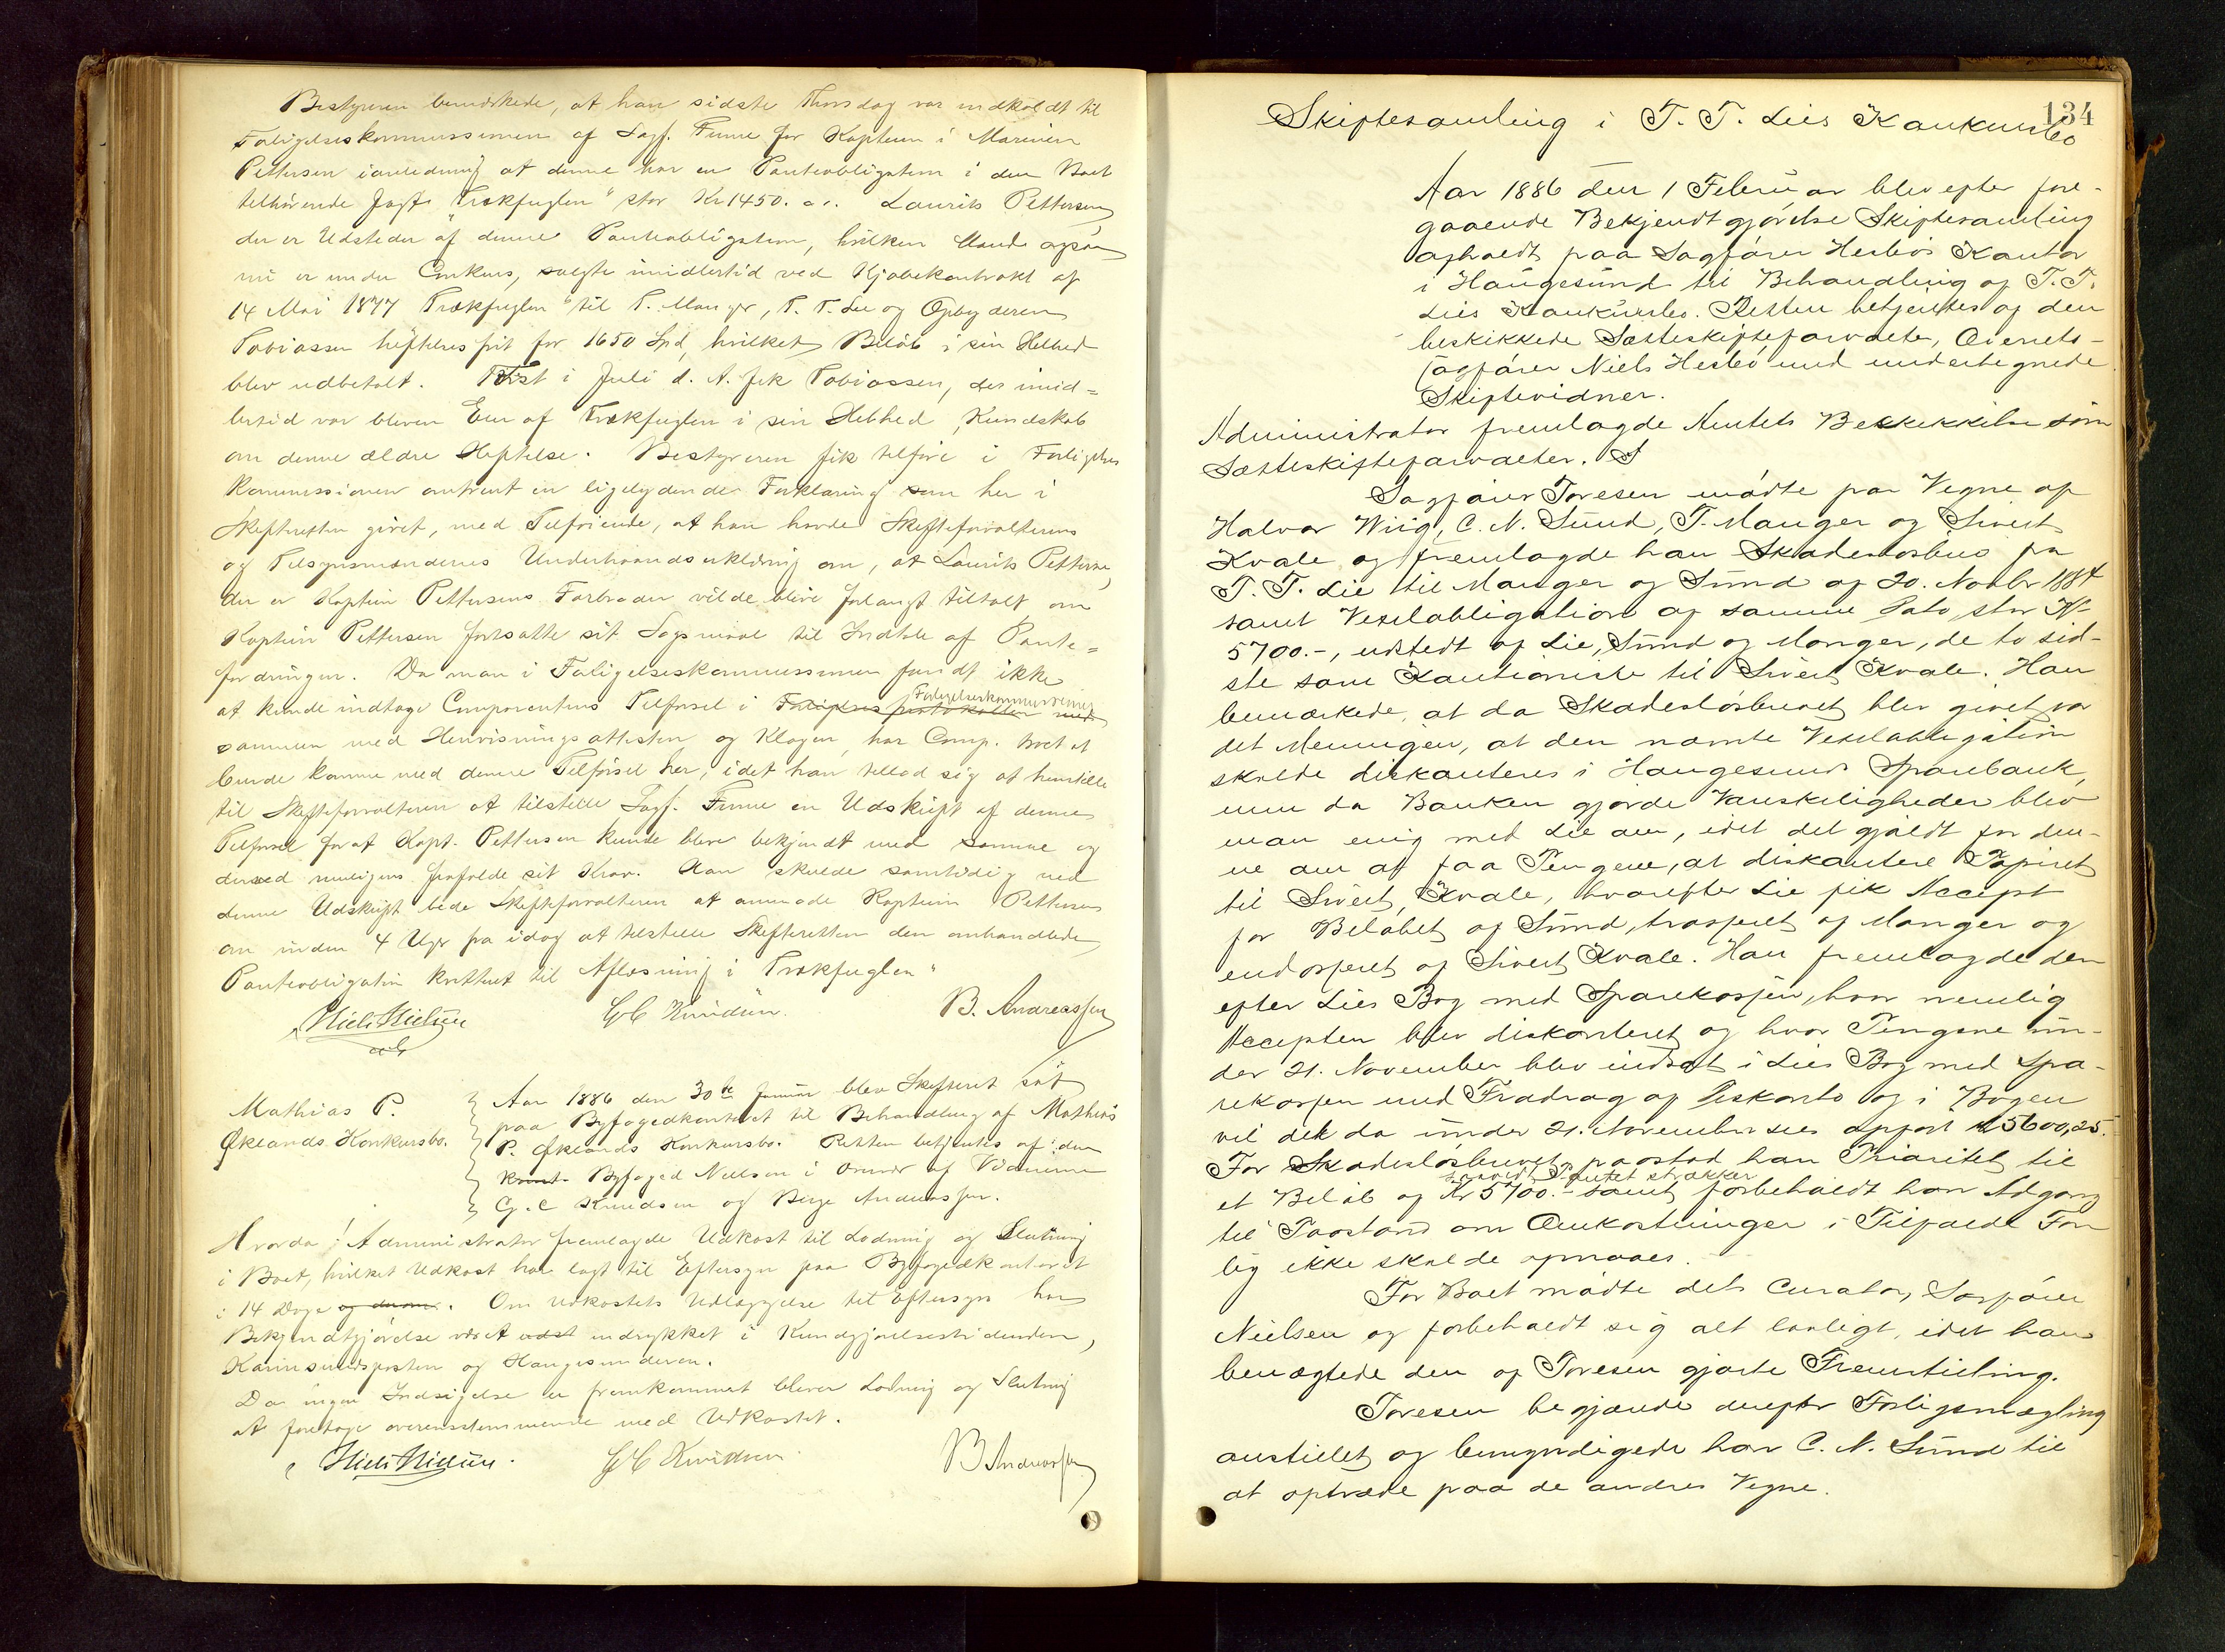 Bestyreren bemærkede, at han sidste Thorsdag var indkaldt til
Forligelseskommissionen af Sagf. Finne for Kaptein i Marinen
Pettersen i anledning at denne har en Panteobligation i den Boet
tilhørende Jagt "Trækfuglen" stor Kr 1450. Laurits Pettersen
der er Udsteder af denne Panteobligation, hvilken Mand ogsaa
nu er under Conkurs, solgte imidlertid ved Kjøbekontrakt af
14 Mai 1877 "Trækfuglen" til T. Manger, T. T. Lie og Opbyderen
Tobiassen heftelsesfrit for 1650 Spd, hvilket Beløb i sin Helhed
blev udbetalt. Først i Juli d. A. fik Tobiassen, der imid=
lertid var bleven Eier af Trækfuglen i sin Helhed, Kundskab
om denne ældre Heftelse. Bestyreren fik tilføre i Forligelses
kommissionen omtrent en ligelydende Forklaring som her i
Skifteretten givet, med Tilføiende, at han havde Skifteforvalterens
og Tilsynsmændenes Underhaandserklæring om, at Laurits Pettersen,
der er Kaptein Pettersens Farbroder vilde blive forlangt tiltalt om
Kaptein Pettersen fortsatte sit Søgsmaal til Indtale af Pante=
fordringen. Da man i Forligelseskommissionen fandt ikke
at kunde indtage Comparentens Tilførsel i Forligelsesprotokollen med Forligelseskommissionens
sammen med Henvisningsattesten og Klagen, har Comp. troet at
burde komme med denne Tilførsel her, idet han tillod sig at henstille
til Skifteforvalteren at tilstille Sagf. Finne en Udskrift af denne
Tilførsel for at Kapt. Pettersen kunde blive bekjendt med samme og
derved muligens frafalde sit Krav. Han skulde samtidig med
denne Udskrift bede Skifteforvalteren at anmode Kaptein Pettersen
om inden 4 Uger fra idag at tilstille Skifteretten den omhandlede
Panteobligation kvitteret til Aflæsning i "Trækfuglen"
Niels Nielsen G C Knudsen. B. Andreassen
Mathias P.
Øklands Konkursbo.
Aar 1886 den 30te Januar blev Skifteret sat
paa Byfogedkontoret til Behandling af Mathias
P. Øklands Konkursbo. Retten betjentes af den
konst. Byfoged Nielsen i Overvær af Vidnerne
G. C Knudsen og Berge Andreassen.
Hvorda! Administrator fremlagde Udkast til Lodning og Slutning
i Boet, hvilket Udkast har lagt til Eftersyn paa Byfogedkontoret
i 14 Dage og derom. Om Udkastets Udlæggelse til Eftersyn har
Bekjendtgjørelse været udst indrykket i Kundgjørelsestidenden,
Karmsundsposten og Haugesunderen.
Da ingen Indsigelse er fremkommet bliver Lodning og Slutning
at foretage overensstemmende med Udkastet.
Niels Nielsen. G C Knudsen B Andreassen
134
Skiftesamling i T. T. Lies Konkursbo
Aar 1886 den 1 Februar blev efter fore-
gaaende Bekjendtgjørelse Skiftesamling
afholdt paa Sagfører Hesbøs Kontor
i Haugesund til Behandling af T. T.
Lies Konkursbo. Retten betjentes af den
beskikkede Sætteskifteforvalter, Overrets-
sagfører Niels Hesbø med undertegnede
Skiftevidner.
Administrator fremlagde Amtets Beskikkelse som
Sætteskifteforvalter. S
Sagfører Toresen mødte paa Vegne af
Halvor Wiig, C. N. Sund, T. Manger og Sivert
Kvale og fremlagde han Skadesløsbrev fra
T. T. Lie til Manger og Sund af 20. Novbr 1884
samt Vexelobligation af samme Dato, stor Kr
5700.-, udstedt af Lie, Sund og Manger, de to sid-
ste som Kautionister til Sivert Kvale. Han
bemærkede, at da Skadesløsbrevet blev givet var
det Meningen, at den nævnte Vexelobligation
skulde diskonteres i Haugesunds Sparebank,
men da Banken gjorde Vanskeligheder blev
man enig med Lie om, idet det gjaldt for den-
ne om at faa Pengene, at diskontere Papiret
til Sivert Kvale, hvorefter Lie fik Accept
for Beløbet af Sund, trasseret af Manger og
endosseret af Sivert Kvale. Han fremlagde den
efter Lies Bog med Sparekassen, hvor nemlig
Accepten blev diskonteret og hvor Pengene un-
der 21. November blev indsat i Lies Bog med Spa-
rekassen med Fradrag af Diskonto og i Bogen
vil det da under 21. November sees opført Kr 5600,25.
For Skadesløsbrevet paastod han Prioritet til
et Beløb af Kr 5700.- saavidt Pantet strækker samt forbeholdt han Adgang
til Paastand om Omkostninger i Tilfælde For
lig ikke skulde opnaaes.
For Boet mødte dets Curator, Sagfører
Nielsen og forbeholdt sig alt lovligt, idet han
benægtede den af Toresen gjorte Fremstilling.
Toresen begjærede derefter Forligsmægling
anstillet og bemyndigede han C. N. Sund til
at optræde paa de andres Vegne.